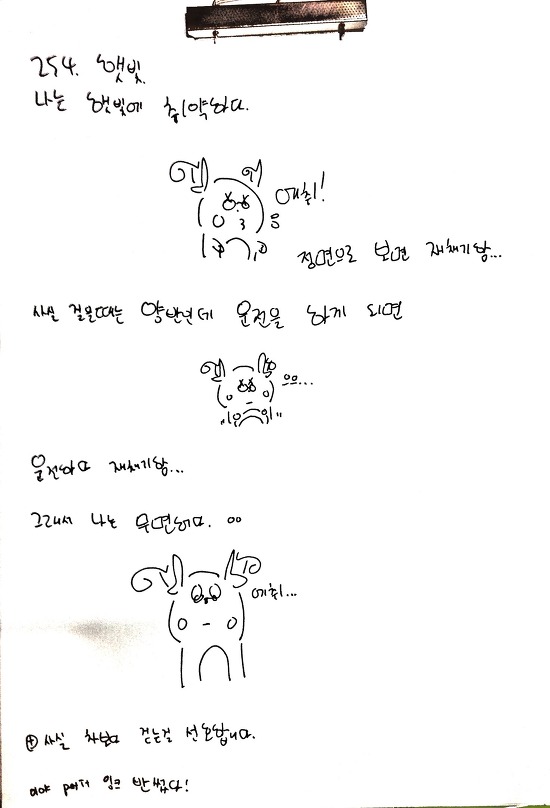 254. 햇빛
나는 햇빛에 취약하다.
에취!
정면으로 보면 재채기함...
사실 걸을때는 양반인데 운전을 하게 되면
ㅇㅇ...
운전하다 재채기함...
그래서 나는 우면하다. ㅇㅇ
에취...
⊕ 사실 차보다 걷는걸 선호합니다.
아야 펜터 잉크 반썼다!